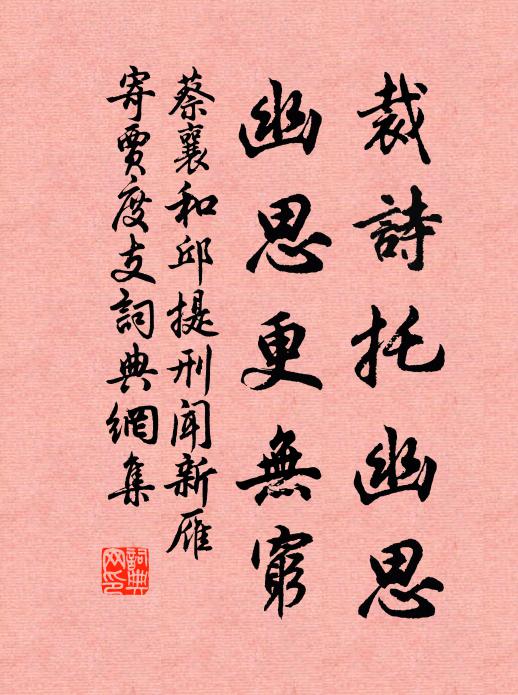 裁詩托幽思
幽思更無窮
蔡襄和邱提刑聞新雁
寄賈度支詞典網集
詞典网印